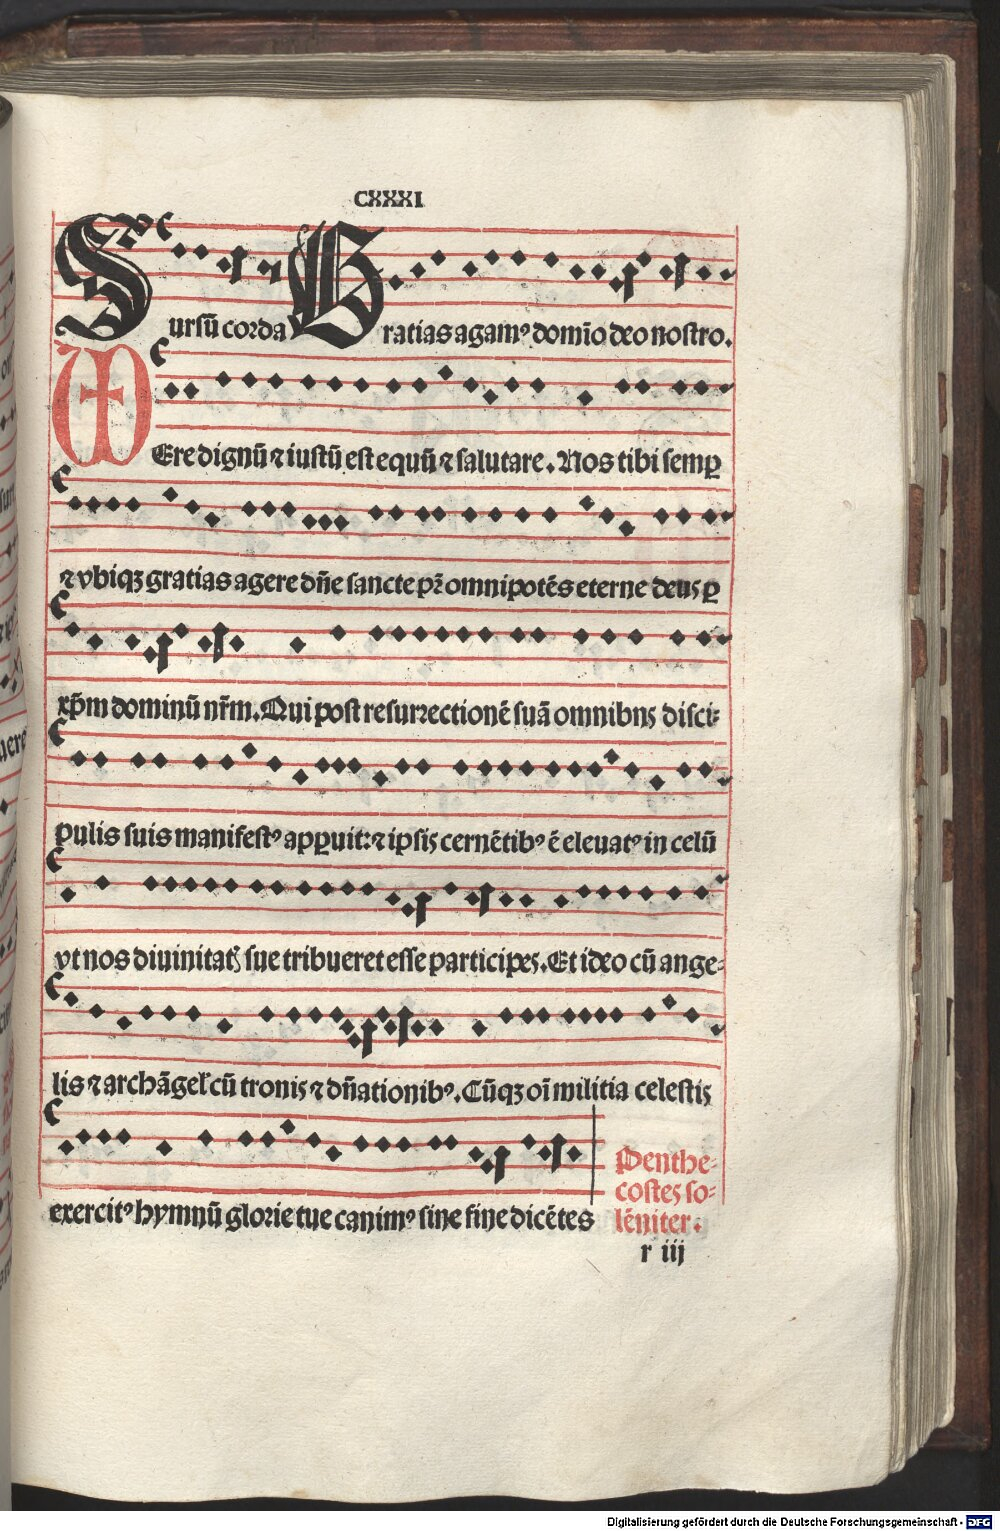 CXXXI
Sursū corda Gratias agamꝰ domīo deo nostro.
VEre dignū ⁊ iustū est equū ⁊ salutare. Nos tibi semꝑ
⁊ vbiqꝫ gratias agere dn̄e sancte pr̄ omnipotēs eterne deus ꝑ
xp̄m dominū nr̄m. Qui post resurrectionē suā omnibus disci⸗
pulis suis manifestꝰ apꝑuit: ⁊ ipsis cernētibꝰ ē eleuatꝰ in celū
vt nos diuinitatꝭ sue tribueret esse participes. Et ideo cū ange⸗
lis ⁊ archāgel̓ cū tronis ⁊ dn̄ationibꝰ. Cūqꝫ oī militia celestis
exercitꝰ hymnū glorie tue canimꝰ sine fine dicētes
Penthe⸗
costes so⸗
lēniter.
r iij
Digitalisierung gefördert durch die Deutsche Forschungsgemeinschaft - DFG